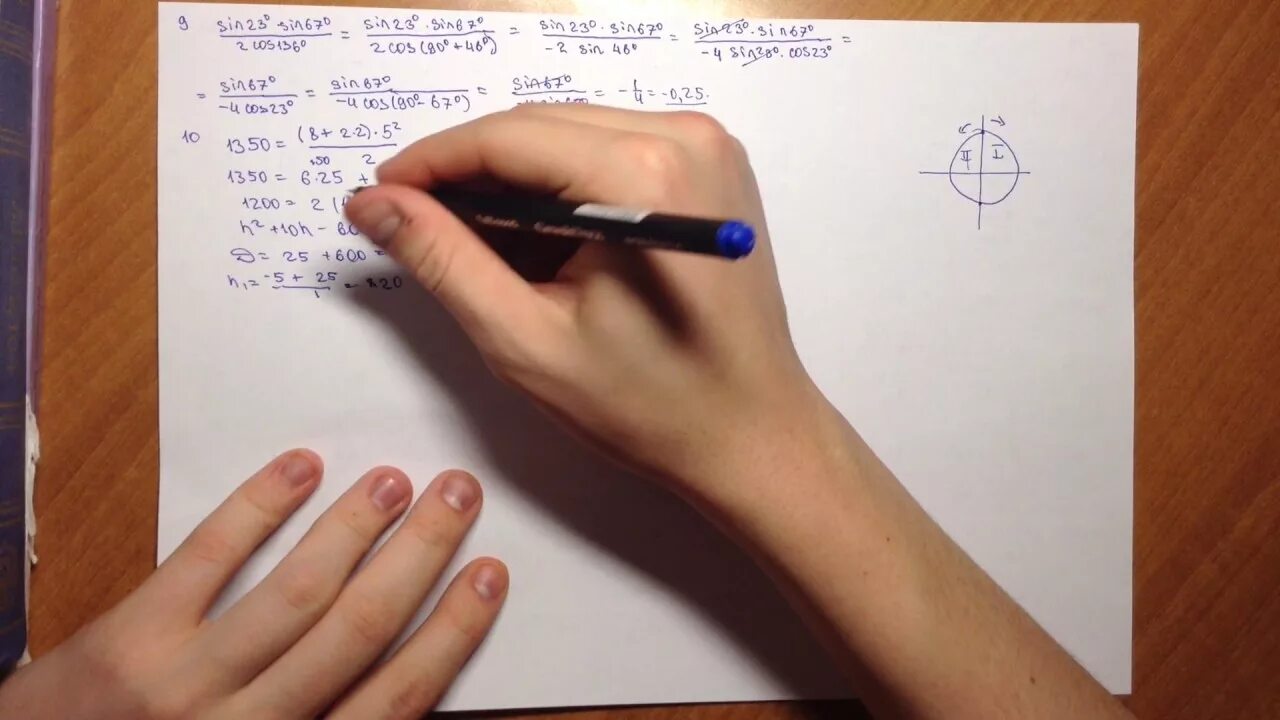 9 sin23° · sin67° / 2 cos136° = sin23° · sin67° / 2 cos(90° + 46°) = sin23° · sin67° / -2 sin 46° = sin23° · sin67° / -4 sin23° · cos23° =
= sin67° / -4 cos23° = sin67° / -4 cos(90° - 67°) = sin67° / = - 1/4 = -0,25.
10 1350 = (8 + 2·2) · 5² / 2
1350 = 6·25 +
1200 = 2 (
h² + 10h - 60
D = 25 + 600 =
h₁ = -5 + 25 / 1 = 20
II I